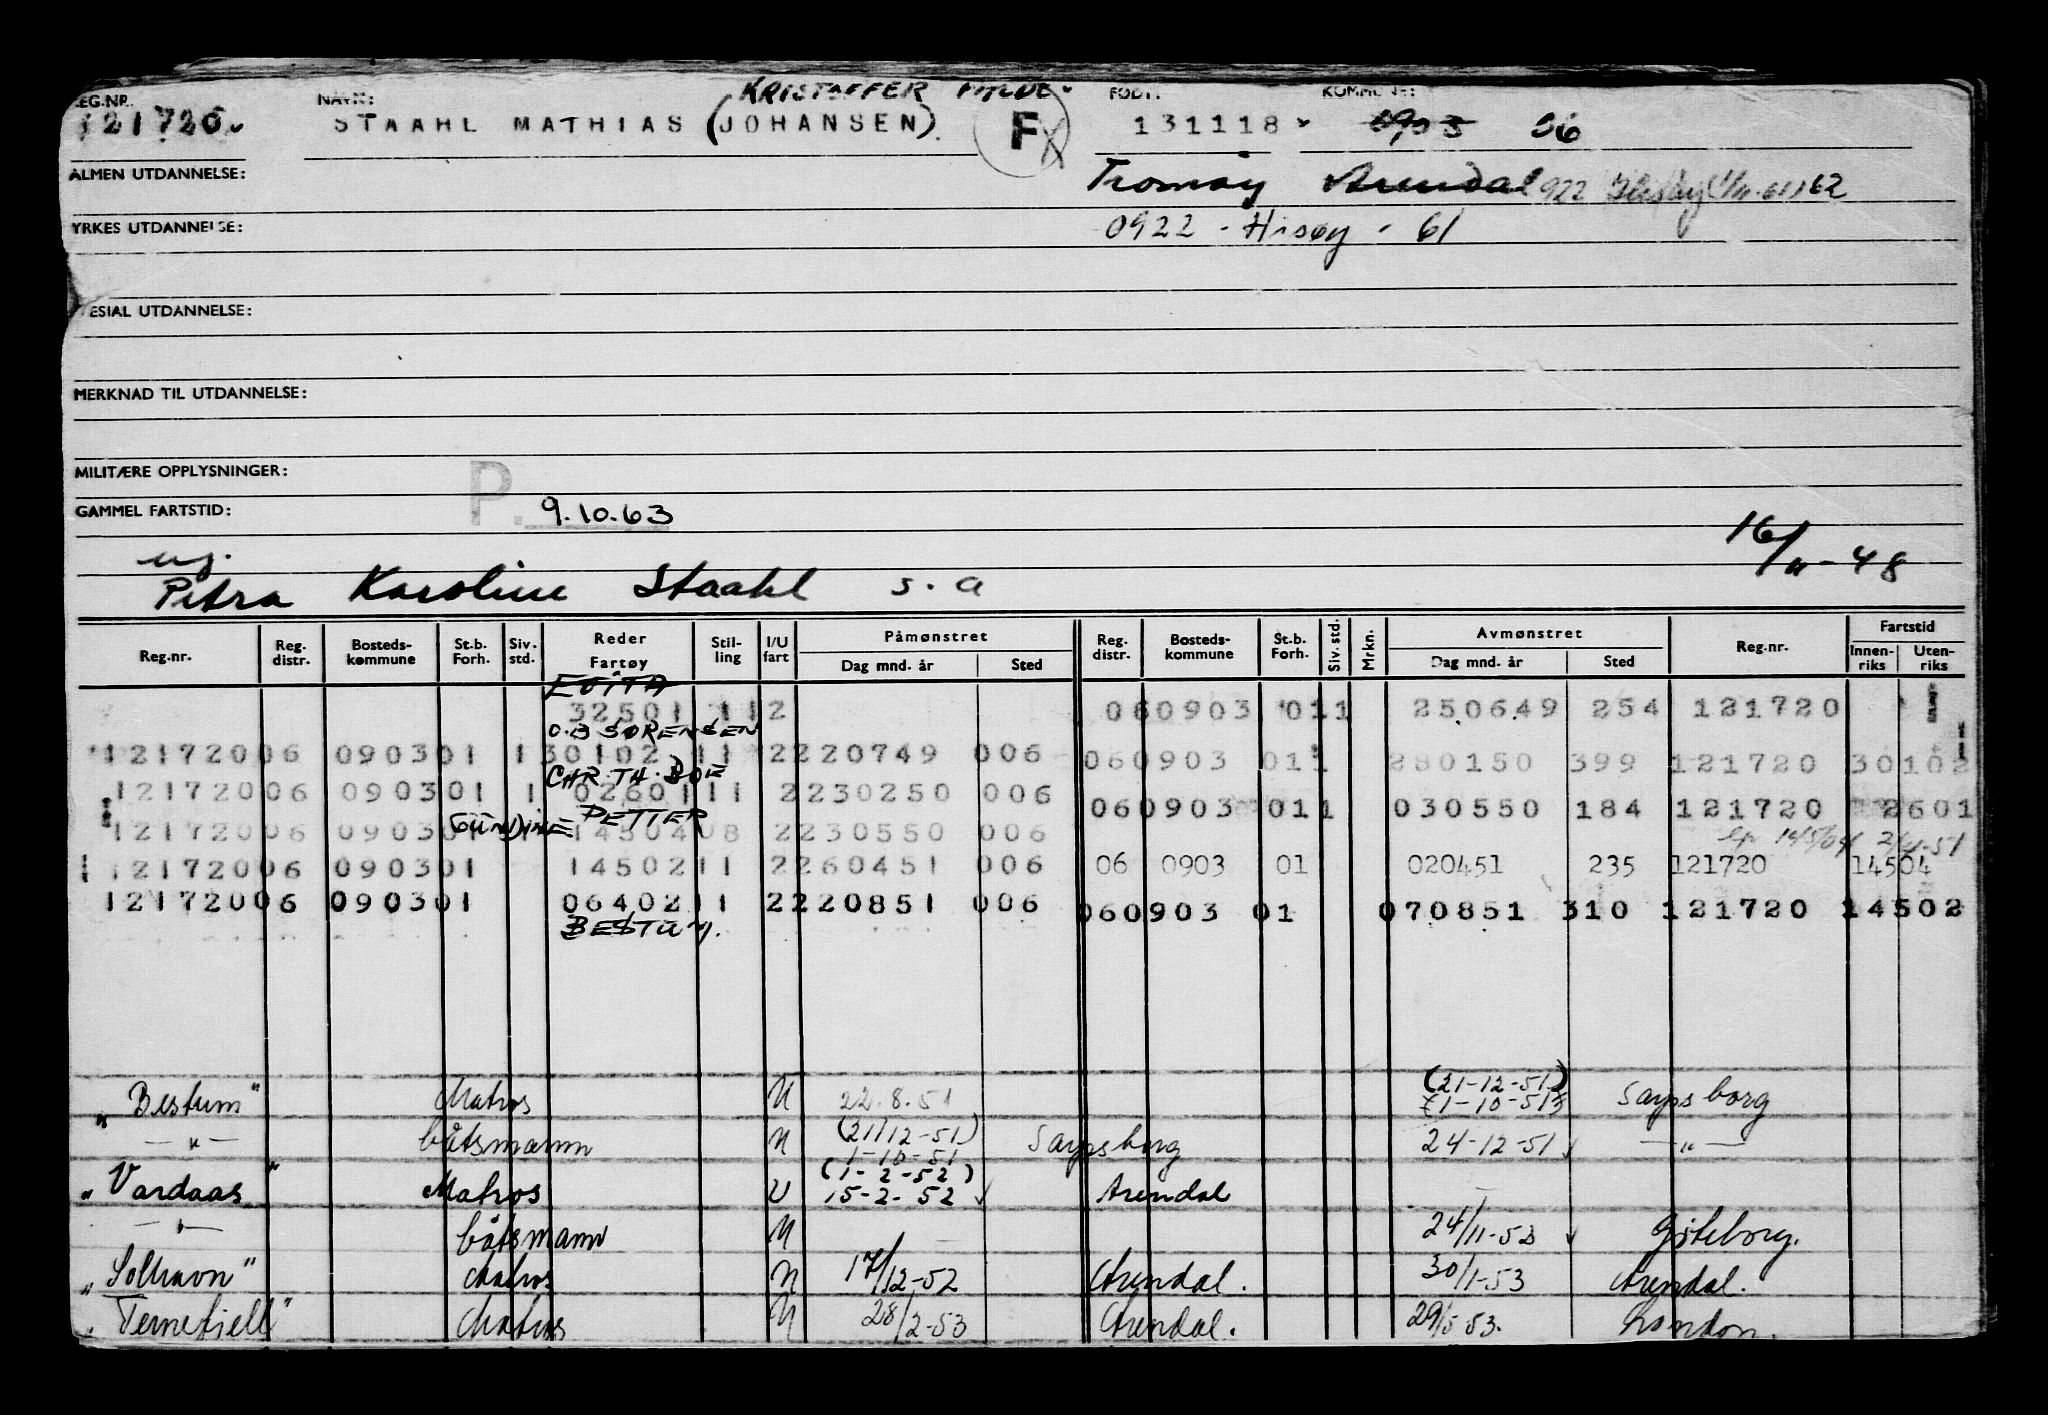 KRISTOFFER
REG.NR. NAVN: FØDT: KOMMUNE:
121720 STAAHL MATHIAS (JOHANSEN) F 131118 0903 06
ALMEN UTDANNELSE: Tromøy Arendal 922 62
YRKES UTDANNELSE: 0922 - Hisøy - 61
SPESIAL UTDANNELSE:
MERKNAD TIL UTDANNELSE:
MILITÆRE OPPLYSNINGER:
GAMMEL FARTSTID: P. 9.10.63
ug. 16/11-48
Petra Karoline Staahl s. a
Reg.nr. Reg. distr. Bosteds-kommune St.b. Forh. Siv. std. Reder Fartøy Stil-ling I/U fart Påmønstret Dag mnd. år Sted Reg. distr. Bosteds-kommune St.b. Forh. Siv. std. Mrkn. Avmønstret Dag mnd. år Sted Reg.nr. Fartstid Innen-riks Uten-riks
EDITA
32501 112 060903 011 250649 254 121720
O.B SØRENSEN
12172006 090301 130102 11 2220749 006 060903 011 280150 399 121720 30102
CHR. TH. BOE
12172006 090301 1 0260111 2230250 006 060903 011 030550 184 121720 2601
GUNDINE PETTER
12172006 090301 1450408 2230550 006
2/4-51
12172006 090301 1450211 2260451 006 06 0903 01 020451 235 121720 14504
12172006 090301 0640211 2220851 006 060903 01 070851 310 121720 14502
BESTUM.
(21-12-51)
"Bestum" Matros U 22.8.51 (1-10-51) Sarpsborg
— " — båtsmann U (21/12-51) Sarpsborg 24-12-51 — " —
1-10-51
(1-2-52)
"Vardaas" Matros U 15-2-52 Arendal
— " — båtsmann U 24/11-52 Göteborg.
"Solhavn" Matros U 17/12-52 Arendal. 30/1-53 Arendal.
"Ternefjell" Matros U 28/2-53 Arendal. 29/5 53. London.